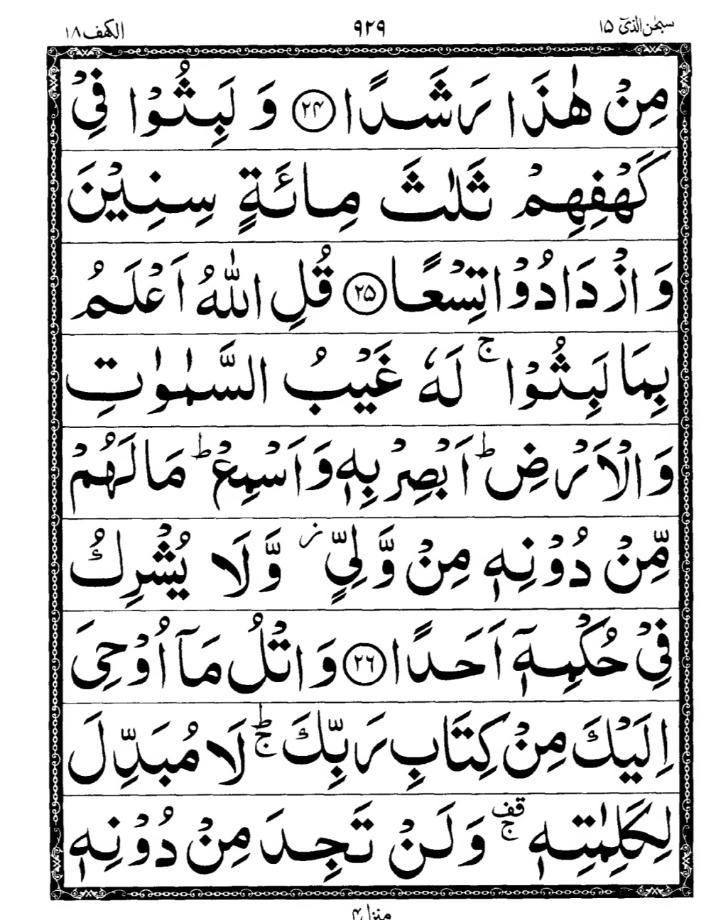 سبحٰن الذیٓ ۱۵ ۹۲۹ الکہف ۱۸
مِنْ هٰذَا رَشَدًا ﴿۲۴﴾ وَ لَبِثُوْا فِيْ
كَهْفِهِمْ ثَلٰثَ مِائَةٍ سِنِيْنَ
وَازْدَادُوْا تِسْعًا ﴿۲۵﴾ قُلِ اللّٰهُ اَعْلَمُ
بِمَا لَبِثُوْا ۚ لَهٗ غَيْبُ السَّمٰوٰتِ
وَالْاَرْضِ ؕ اَبْصِرْ بِهٖ وَاَسْمِعْ ؕ مَا لَهُمْ
مِّنْ دُوْنِهٖ مِنْ وَّلِيٍّ ز وَّلَا يُشْرِكُ
فِيْ حُكْمِهٖٓ اَحَدًا ﴿۲۶﴾ وَاتْلُ مَآ اُوْحِيَ
اِلَيْكَ مِنْ كِتَابِ رَبِّكَ ؕۚ لَا مُبَدِّلَ
لِكَلِمٰتِهٖ قف ۚ وَلَنْ تَجِدَ مِنْ دُوْنِهٖ
منزل ۴